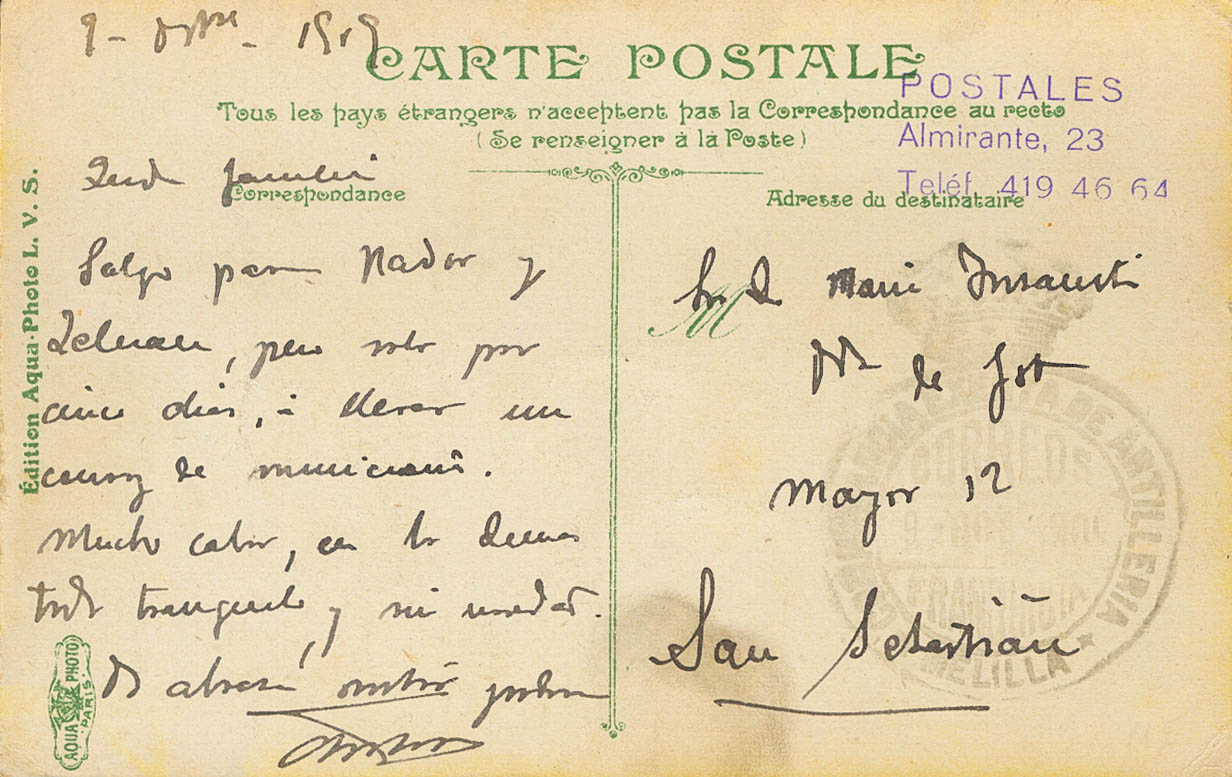 9 - 1909
CARTE POSTALE
POSTALES
Almirante, 23
Teléf. 419 46 64
Tous les pays étrangers n'acceptent pas la Correspondance au recto
(Se renseigner à la Poste)
Correspondance
Adresse du destinataire
Édition Aqua-Photo L. V. S.
Salgo para Nador y
Zeluan, pero solo por
cinco dias, á llevar un
convoy de municiones.
Mucho calor, en lo demas
todo tranquilo, y sin novedad.
Os abraza vuestro
AQUA PHOTO
PARIS
M
Maria Insausti
de
Mayor 12
San Sebastián
DE ARTILLERIA
CORREOS
FRANQUICIA
MELILLA